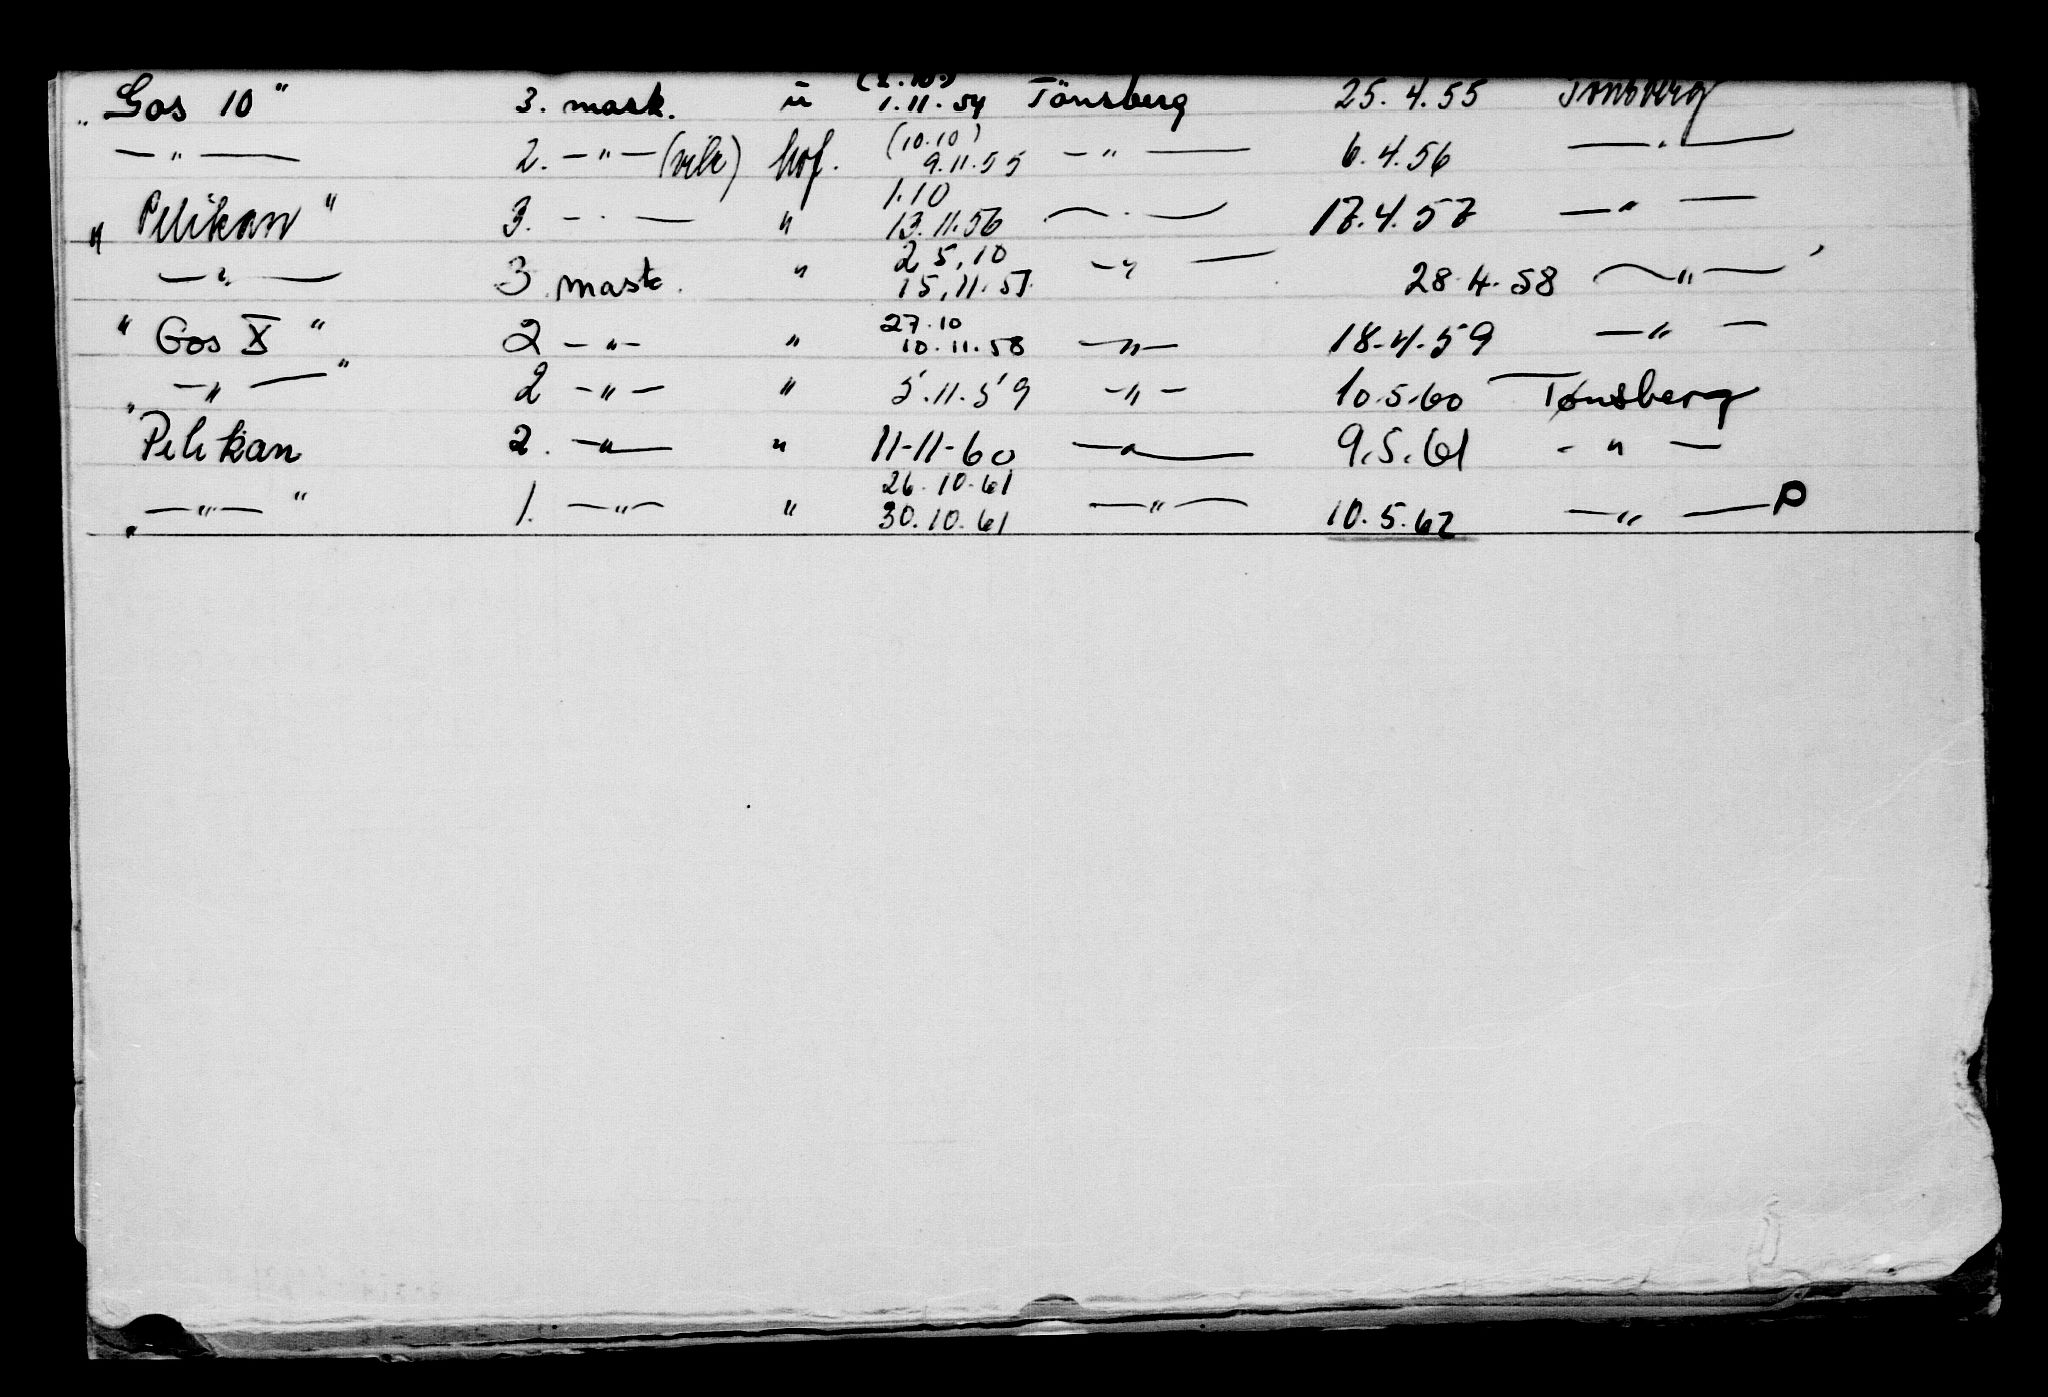 „Gos 10" 3. mask. u (2.10.) 1.11.54 Tönsberg 25.4.55 Tönsberg
—"— 2. —"— (vik) hof. (10.10) 9.11.55 —"— 6.4.56 —"—
"Pelikan" 3. —"— " 1.10 13.11.56 —"— 17.4.57 —"—
—"— 3 mask. " 25.10 15.11.57. —"— 28.4.58 —"—
"Gos X" 2 —"— " 27.10 10.11.58 —"— 18.4.59 —"—
—"—" 2 —"— " 5.11.59 —"— 10.5.60 Tønsberg
„Pelikan 2. —"— " 11-11-60 —"— 9.5.61 —"—
„—"—" 1. —"— " 26.10.61 30.10.61 —"— 10.5.62 —"— P